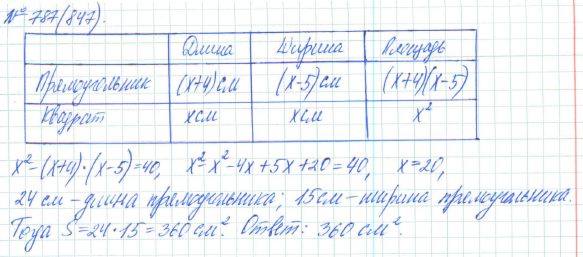 № 787(847).
Длина Ширина Площадь
Прямоугольник (x+4)см (x-5)см (x+4)(x-5)
Квадрат xсм xсм x²
x²-(x+4)·(x-5)=40, x²-x²-4x+5x+20=40, x=20,
24 см – длина прямоугольника; 15см – ширина прямоугольника.
Тогда S=24·15=360 см². Ответ: 360 см².